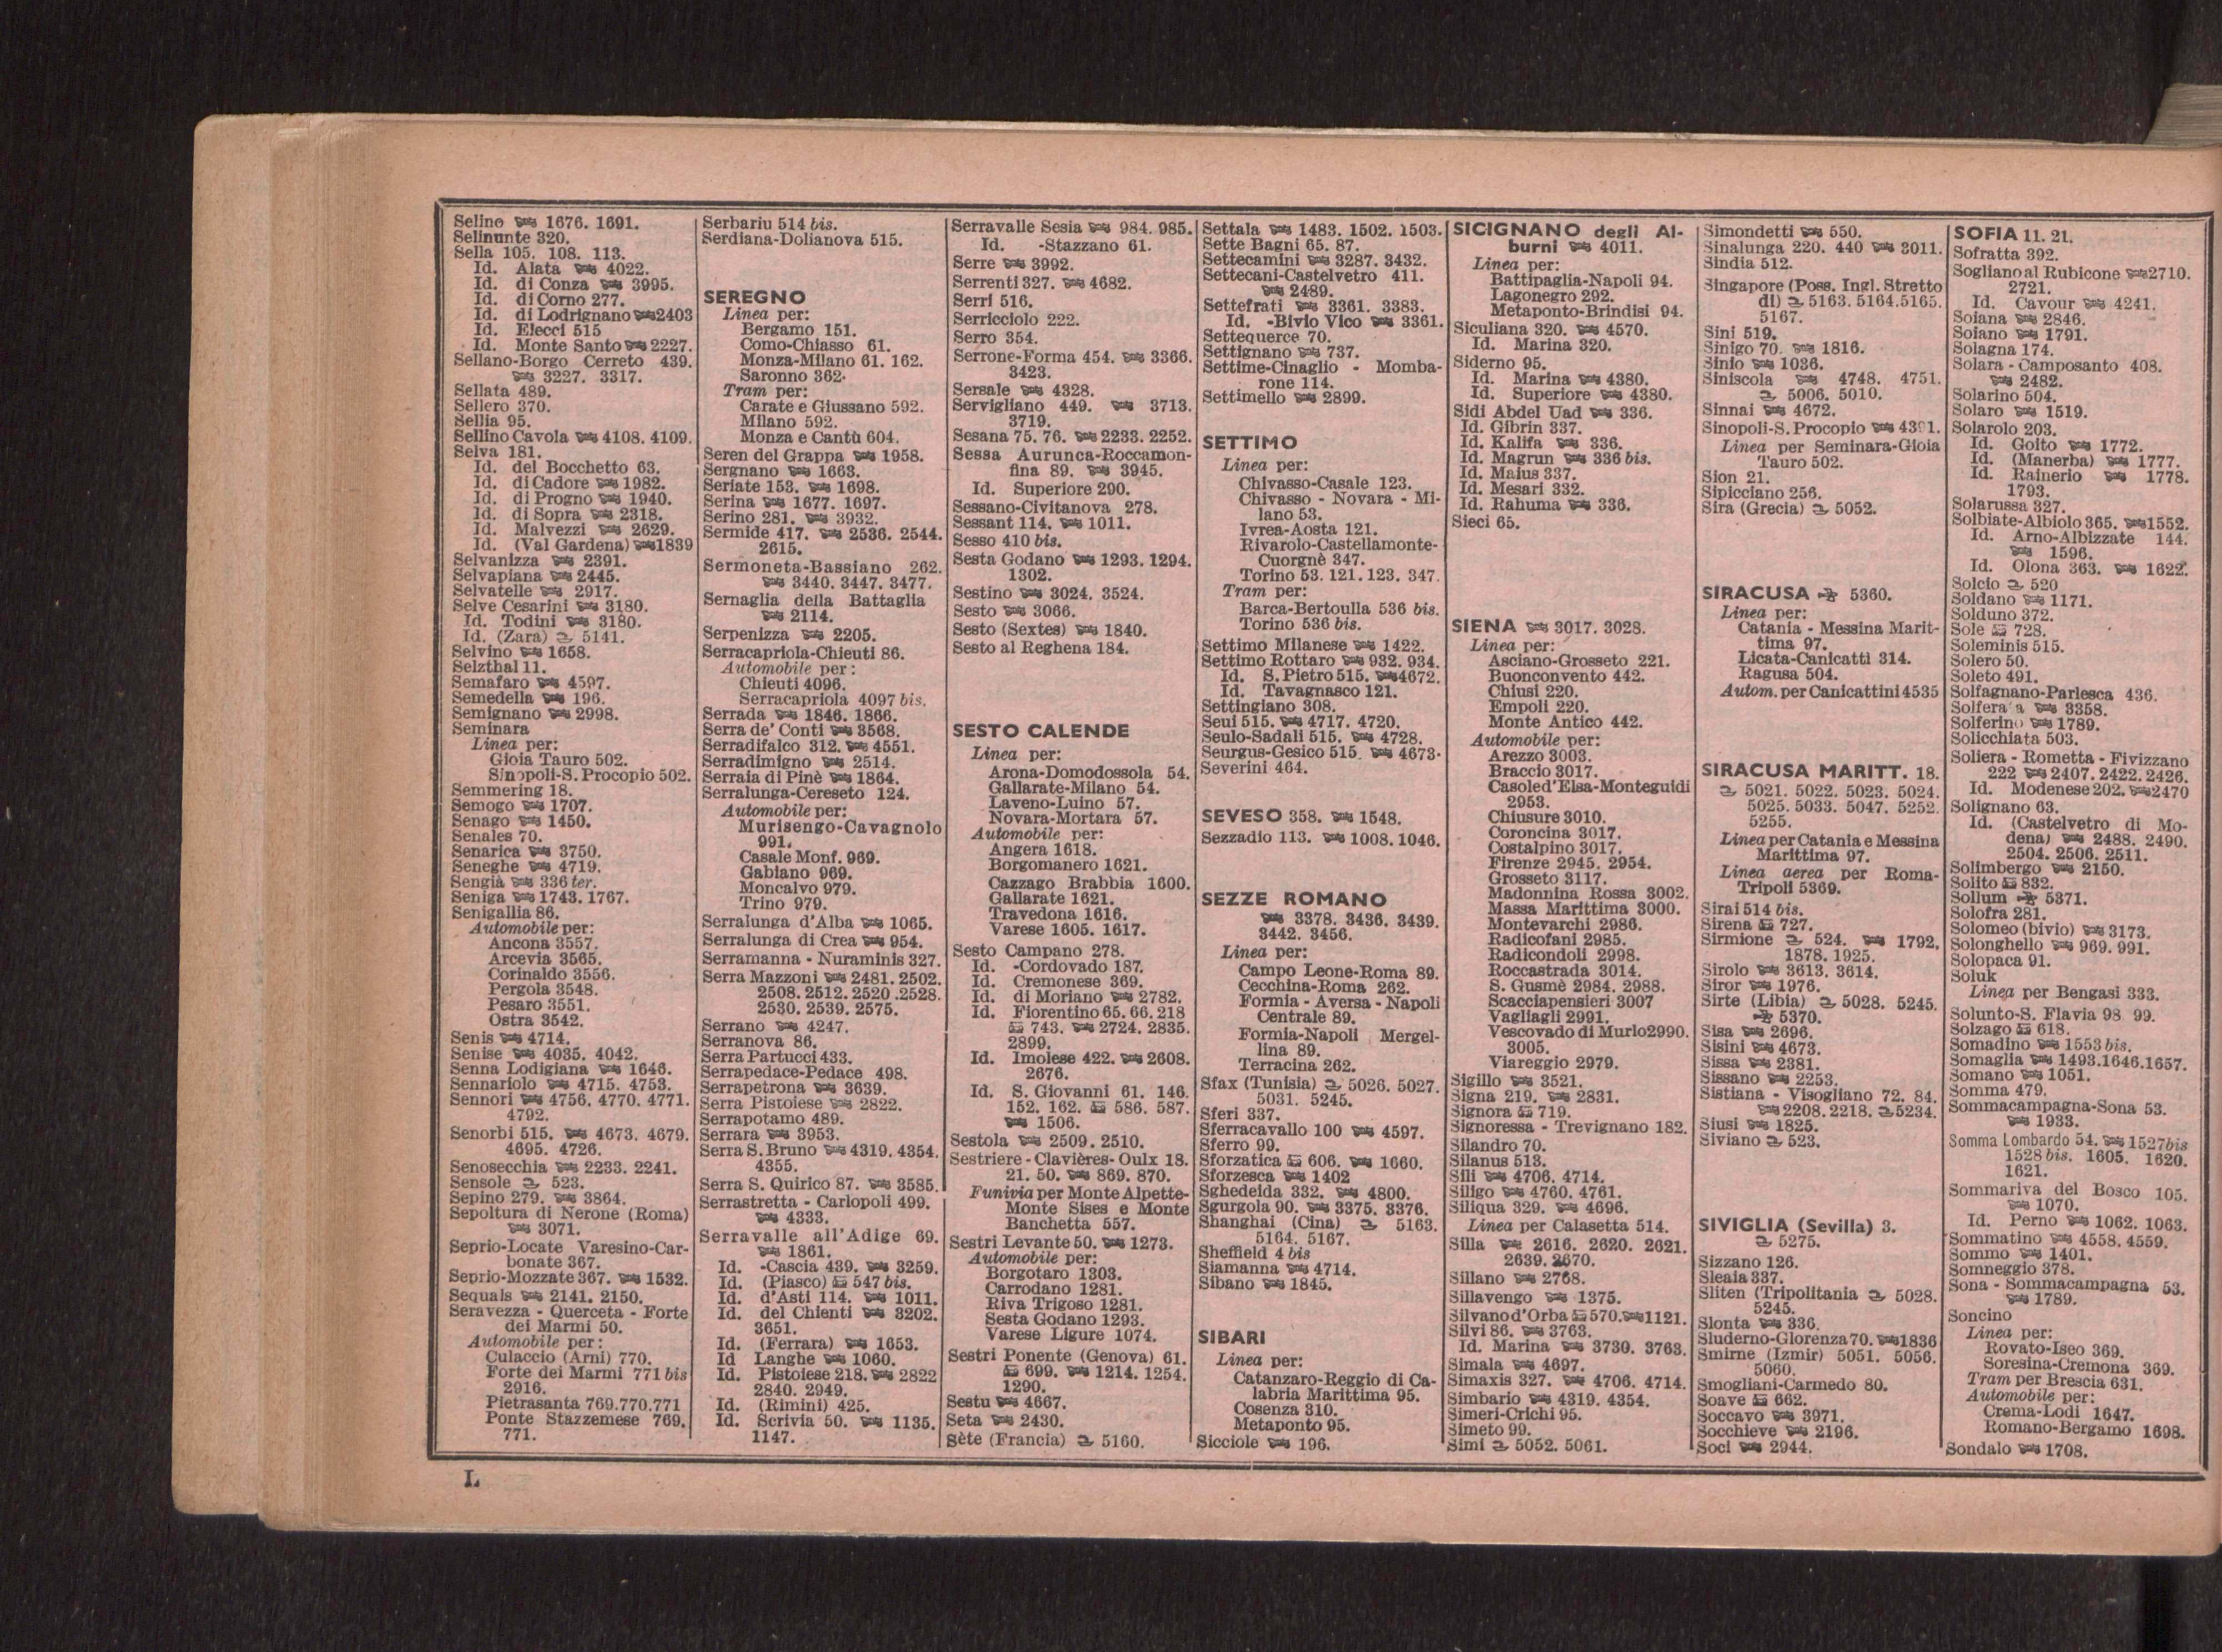 Selino 1676. 1691.
Selinunte 320.
Sella 105. 108. 113.
Id. Alata 4022.
Id. di Conza 3995.
Id. di Corno 277.
Id. di Lodrignano 2403
Id. Elecci 515
Id. Monte Santo 2227.
Sellano-Borgo Cerreto 439.
3227. 3317.
Sellata 489.
Sellero 370.
Sellia 95.
Sellino Cavola 4108. 4109.
Selva 181.
Id. del Bocchetto 63.
Id. di Cadore 1982.
Id. di Progno 1940.
Id. di Sopra 2318.
Id. Malvezzi 2629.
Id. (Val Gardena) 1839
Selvanizza 2391.
Selvapiana 2445.
Selvatelle 2917.
Selve Cesarini 3180.
Id. Todini 3180.
Id. (Zara) 5141.
Selvino 1658.
Selzthal 11.
Semafaro 4597.
Semedella 196.
Semignano 2998.
Seminara
Linea per:
Gioia Tauro 502.
Sinopoli-S. Procopio 502.
Semmering 18.
Semogo 1707.
Senago 1450.
Senales 70.
Senarica 3750.
Seneghe 4719.
Sengia 336 ter.
Seniga 1743. 1767.
Senigallia 86.
Automobile per:
Ancona 3557.
Arcevia 3565.
Corinaldo 3556.
Pergola 3548.
Pesaro 3551.
Ostra 3542.
Senis 4714.
Senise 4035. 4042.
Senna Lodigiana 1646.
Sennariolo 4715. 4753.
Sennori 4756. 4770. 4771.
4792.
Senorbi 515. 4673. 4679.
4695. 4726.
Senosecchia 2233. 2241.
Sensole 523.
Sepino 279. 3864.
Sepoltura di Nerone (Roma)
3071.
Seprio-Locate Varesino-Car-
bonate 367.
Seprio-Mozzate 367. 1532.
Sequals 2141. 2150.
Seravezza - Querceta - Forte
dei Marmi 50.
Automobile per:
Culaccio (Arni) 770.
Forte dei Marmi 771 bis
2916.
Pietrasanta 769.770.771
Ponte Stazzemese 769.
771.
Serbariu 514 bis.
Serdiana-Dolianova 515.
SEREGNO
Linea per:
Bergamo 151.
Como-Chiasso 61.
Monza-Milano 61. 162.
Saronno 362.
Tram per:
Carate e Giussano 592.
Milano 592.
Monza e Cantù 604.
Seren del Grappa 1958.
Sergnano 1663.
Seriate 153. 1698.
Serina 1677. 1697.
Serino 281. 3932.
Sermide 417. 2536. 2544.
2615.
Sermoneta-Bassiano 262.
3440. 3447. 3477.
Sernaglia della Battaglia
2114.
Serpenizza 2205.
Serracapriola-Chieuti 86.
Automobile per:
Chieuti 4096.
Serracapriola 4097 bis.
Serrada 1846. 1866.
Serra de' Conti 3568.
Serradifalco 312. 4551.
Serradimigno 2514.
Serraia di Pinè 1864.
Serralunga-Cereseto 124.
Automobile per:
Murisengo-Cavagnolo
991.
Casale Monf. 969.
Gabiano 969.
Moncalvo 979.
Trino 979.
Serralunga d'Alba 1065.
Serralunga di Crea 954.
Serramanna - Nuraminis 327.
Serra Mazzoni 2481. 2502.
2508. 2512. 2520 .2528.
2530. 2539. 2575.
Serrano 4247.
Serranova 86.
Serra Partucci 433.
Serrapedace-Pedace 498.
Serrapetrona 3639.
Serra Pistoiese 2822.
Serrapotamo 489.
Serrara 3953.
Serra S. Bruno 4319. 4354.
4355.
Serra S. Quirico 87. 3585.
Serrastretta - Carlopoli 499.
4333.
Serravalle all'Adige 69.
1861.
Id. -Cascia 439. 3259.
Id. (Piasco) 547 bis.
Id. d'Asti 114. 1011.
Id. del Chienti 3202.
3651.
Id. (Ferrara) 1653.
Id Langhe 1060.
Id. Pistoiese 218. 2822
2840. 2949.
Id. (Rimini) 425.
Id. Scrivia 50. 1135.
1147.
Serravalle Sesia 984. 985.
Id. -Stazzano 61.
Serre 3992.
Serrenti 327. 4682.
Serri 516.
Serricciolo 222.
Serro 354.
Serrone-Forma 454. 3366.
3423.
Sersale 4328.
Servigliano 449. 3713.
3719.
Sesana 75. 76. 2233. 2252.
Sessa Aurunca-Roccamon-
fina 89. 3945.
Id. Superiore 290.
Sessano-Civitanova 278.
Sessant 114. 1011.
Sesso 410 bis.
Sesta Godano 1293. 1294.
1302.
Sestino 3024. 3524.
Sesto 3066.
Sesto (Sextes) 1840.
Sesto al Reghena 184.
SESTO CALENDE
Linea per:
Arona-Domodossola 54.
Gallarate-Milano 54.
Laveno-Luino 57.
Novara-Mortara 57.
Automobile per:
Angera 1618.
Borgomanero 1621.
Cazzago Brabbia 1600.
Gallarate 1621.
Travedona 1616.
Varese 1605. 1617.
Sesto Campano 278.
Id. -Cordovado 187.
Id. Cremonese 369.
Id. di Moriano 2782.
Id. Fiorentino 65. 66. 218
743. 2724. 2835.
2899.
Id. Imolese 422. 2608.
2676.
Id. S. Giovanni 61. 146.
152. 162. 586. 587.
1506.
Sestola 2509. 2510.
Sestriere - Clavières- Oulx 18.
21. 50. 869. 870.
Funivia per Monte Alpette-
Monte Sises e Monte
Banchetta 557.
Sestri Levante 50. 1273.
Automobile per:
Borgotaro 1303.
Carrodano 1281.
Riva Trigoso 1281.
Sesta Godano 1293.
Varese Ligure 1074.
Sestri Ponente (Genova) 61.
699. 1214. 1254.
1290.
Sestu 4667.
Seta 2430.
Sète (Francia) 5160.
Settala 1483. 1502. 1503.
Sette Bagni 65. 87.
Settecamini 3287. 3432.
Settecani-Castelvetro 411.
2489.
Settefrati 3361. 3383.
Id. -Bivio Vico 3361.
Settequerce 70.
Settignano 737.
Settime-Cinaglio - Momba-
rone 114.
Settimello 2899.
SETTIMO
Linea per:
Chivasso-Casale 123.
Chivasso - Novara - Mi-
lano 53.
Ivrea-Aosta 121.
Rivarolo-Castellamonte-
Cuorgnè 347.
Torino 53. 121. 123. 347.
Tram per:
Barca-Bertoulla 536 bis.
Torino 536 bis.
Settimo Milanese 1422.
Settimo Rottaro 932. 934.
Id. S. Pietro 515. 4672.
Id. Tavagnasco 121.
Settingiano 308.
Seui 515. 4717. 4720.
Seulo-Sadali 515. 4728.
Seurgus-Gesico 515. 4673.
Severini 464.
SEVESO 358. 1548.
Sezzadio 113. 1008. 1046.
SEZZE ROMANO
3378. 3436. 3439.
3442. 3456.
Linea per:
Campo Leone-Roma 89.
Cecchina-Roma 262.
Formia - Aversa - Napoli
Centrale 89.
Formia-Napoli Mergel-
lina 89.
Terracina 262.
Sfax (Tunisia) 5026. 5027.
5031. 5245.
Sferi 337.
Sferracavallo 100 4597.
Sferro 99.
Sforzatica 606. 1660.
Sforzesca 1402
Sghedeida 332. 4800.
Sgurgola 90. 3375. 3376.
Shanghai (Cina) 5163.
5164. 5167.
Sheffield 4 bis
Siamanna 4714.
Sibano 1845.
SIBARI
Linea per:
Catanzaro-Reggio di Ca-
labria Marittima 95.
Cosenza 310.
Metaponto 95.
Sicciole 196.
SICIGNANO degli Al-
burni 4011.
Linea per:
Battipaglia-Napoli 94.
Lagonegro 292.
Metaponto-Brindisi 94.
Siculiana 320. 4570.
Id. Marina 320.
Siderno 95.
Id. Marina 4380.
Id. Superiore 4380.
Sidi Abdel Uad 336.
Id. Gibrin 337.
Id. Kalifa 336.
Id. Magrun 336 bis.
Id. Maius 337.
Id. Mesari 332.
Id. Rahuma 336.
Sieci 65.
SIENA 3017. 3028.
Linea per:
Asciano-Grosseto 221.
Buonconvento 442.
Chiusi 220.
Empoli 220.
Monte Antico 442.
Automobile per:
Arezzo 3003.
Braccio 3017.
Casoled'Elsa-Monteguidi
2953.
Chiusure 3010.
Coroncina 3017.
Costalpino 3017.
Firenze 2945. 2954.
Grosseto 3117.
Madonnina Rossa 3002.
Massa Marittima 3000.
Montevarchi 2986.
Radicofani 2985.
Radicondoli 2998.
Roccastrada 3014.
S. Gusmè 2984. 2988.
Scacciapensieri 3007
Vagliagli 2991.
Vescovado di Murlo2990.
3005.
Viareggio 2979.
Sigillo 3521.
Signa 219. 2831.
Signora 719.
Signoressa - Trevignano 182.
Silandro 70.
Silanus 513.
Sili 4706. 4714.
Siligo 4760. 4761.
Siliqua 329. 4696.
Linea per Calasetta 514.
Silla 2616. 2620. 2621.
2639. 2670.
Sillano 2768.
Sillavengo 1375.
Silvano d'Orba 570. 1121.
Silvi 86. 3763.
Id. Marina 3730. 3763.
Simala 4697.
Simaxis 327. 4706. 4714.
Simbario 4319. 4354.
Simeri-Crichi 95.
Simeto 99.
Simi 5052. 5061.
Simondetti 550.
Sinalunga 220. 440 3011.
Sindia 512.
Singapore (Poss. Ingl. Stretto
di) 5163. 5164.5165.
5167.
Sini 519.
Sinigo 70. 1816.
Sinio 1036.
Siniscola 4748. 4751.
5006. 5010.
Sinnai 4672.
Sinopoli-S. Procopio 4391.
Linea per Seminara-Gioia
Tauro 502.
Sion 21.
Sipicciano 256.
Sira (Grecia) 5052.
SIRACUSA 5360.
Linea per:
Catania - Messina Marit-
tima 97.
Licata-Canicatti 314.
Ragusa 504.
Autom. per Canicattini 4535
SIRACUSA MARITT. 18.
5021. 5022. 5023. 5024.
5025. 5033. 5047. 5252.
5255.
Linea per Catania e Messina
Marittima 97.
Linea aerea per Roma-
Tripoli 5369.
Sirai 514 bis.
Sirena 727.
Sirmione 524. 1792.
1878. 1925.
Sirolo 3613. 3614.
Siror 1976.
Sirte (Libia) 5028. 5245.
5370.
Sisa 2696.
Sisini 4673.
Sissa 2381.
Sissano 2253.
Sistiana - Visogliano 72. 84.
2208. 2218. 5234.
Siusi 1825.
Siviano 523.
SIVIGLIA (Sevilla) 3.
5275.
Sizzano 126.
Sleaia 337.
Sliten (Tripolitania 5028.
5245.
Slonta 336.
Sluderno-Glorenza 70. 1836
Smirne (Izmir) 5051. 5056.
5060.
Smogliani-Carmedo 80.
Soave 662.
Soccavo 3971.
Socchieve 2196.
Soci 2944.
SOFIA 11. 21.
Sofratta 392.
Sogliano al Rubicone 2710.
2721.
Id. Cavour 4241.
Soiana 2846.
Soiano 1791.
Solagna 174.
Solara - Camposanto 408.
2482.
Solarino 504.
Solaro 1519.
Solarolo 203.
Id. Goito 1772.
Id. (Manerba) 1777.
Id. Rainerio 1778.
1793.
Solarussa 327.
Solbiate-Albiolo 365. 1552.
Id. Arno-Albizzate 144.
1596.
Id. Olona 363. 1622.
Solcio 520
Soldano 1171.
Solduno 372.
Sole 728.
Soleminis 515.
Solero 50.
Soleto 491.
Solfagnano-Parlesca 436.
3358.
Solferino 1789.
Solicchiata 503.
Soliera - Rometta - Fivizzano
222 2407. 2422. 2426.
Id. Modenese 202. 2470
Solignano 63.
Id. (Castelvetro di Mo-
dena) 2488. 2490.
2504. 2506. 2511.
Solimbergo 2150.
Solito 832.
Sollum 5371.
Solofra 281.
Solomeo (bivio) 3173.
Solonghello 969. 991.
Solopaca 91.
Soluk
Linea per Bengasi 333.
Solunto-S. Flavia 98 99.
Solzago 618.
Somadino 1553 bis.
Somaglia 1493.1646.1657.
Somano 1051.
Somma 479.
Sommacampagna-Sona 53.
1933.
Somma Lombardo 54. 1527bis
1528 bis. 1605. 1620.
1621.
Sommariva del Bosco 105.
1070.
Id. Perno 1062. 1063.
Sommatino 4558. 4559.
Sommo 1401.
Somneggio 378.
Sona - Sommacampagna 53.
1789.
Soncino
Linea per:
Rovato-Iseo 369.
Soresina-Cremona 369.
Tram per Brescia 631.
Automobile per:
Crema-Lodi 1647.
Romano-Bergamo 1698.
Sondalo 1708.
L